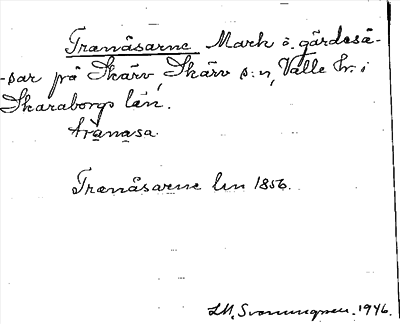 Tranåsarne Mark o. gärdeså-
-sar på Skärv, Skärv s:n, Valle hr. i
Skaraborgs län.
tranasa.
Tranåsarne lm 1856.
1946.